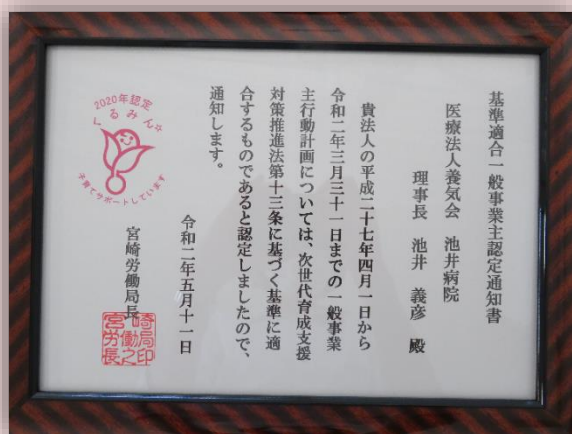 基準適合一般事業主認定通知書
医療法人養気会　池井病院
理事長　池井　義彦　殿
貴法人の平成二十七年四月一日から
令和二年三月三十一日までの一般事業
主行動計画については、次世代育成支援
対策推進法第十三条に基づく基準に適
合するものであると認定しましたので、
通知します。
令和二年五月十一日
宮崎労働局長
宮崎労働局長之印
2020年認定
くるみん
子育てサポートしています